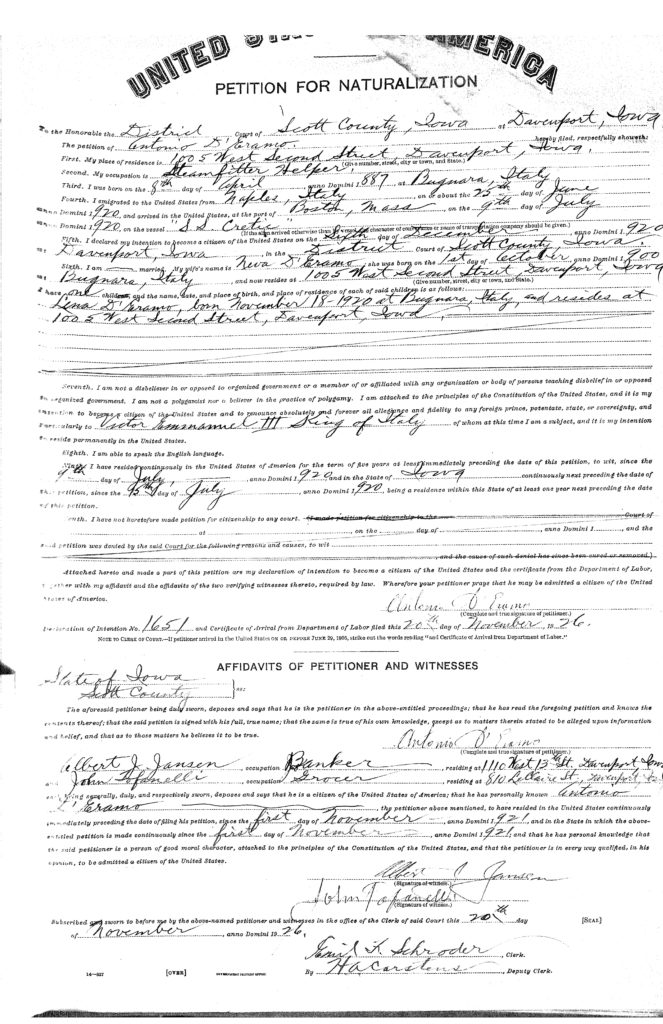 UNITED STATES OF AMERICA
PETITION FOR NATURALIZATION
To the Honorable the District Court of Scott County, Iowa at Davenport, Iowa
The petition of Antonio D'Eramo. hereby filed, respectfully showeth:
First. My place of residence is 1005 West Second Street, Davenport, Iowa.
(Give number, street, city or town, and State.)
Second. My occupation is Steamfitter Helper.
Third. I was born on the 8th day of April anno Domini 1 887, at Bugnara, Italy
Fourth. I emigrated to the United States from Naples, Italy on or about the 25th day of June
anno Domini 1 920, and arrived in the United States, at the port of Boston, Mass on the 9th day of July
anno Domini 1 920, on the vessel "S.S. Cretic"
(If the alien arrived otherwise than by vessel, the character of conveyance or name of transportation company should be given.)
Fifth. I declared my intention to become a citizen of the United States on the day of December anno Domini 1 920
at Davenport, Iowa in the District Court of Scott County, Iowa.
Sixth. I am married. My wife's name is Neva D'Eramo she was born on the 1st day of October anno Domini 1 900
at Bugnara, Italy, and now resides at 1005 West Second Street, Davenport, Iowa
(Give number, street, city or town, and State.)
I have one children, and the name, date, and place of birth, and place of residence of each of said children is as follows:
Lena D'Eramo, born November 18-1920 at Bugnara, Italy, and resides at
1005 West Second Street, Davenport, Iowa.
Seventh. I am not a disbeliever in or opposed to organized government or a member of or affiliated with any organization or body of persons teaching disbelief in or opposed
to organized government. I am not a polygamist nor a believer in the practice of polygamy. I am attached to the principles of the Constitution of the United States, and it is my
intention to become a citizen of the United States and to renounce absolutely and forever all allegiance and fidelity to any foreign prince, potentate, state, or sovereignty, and
particularly to Victor Emmanuel III King of Italy of whom at this time I am a subject, and it is my intention
to reside permanently in the United States.
Eighth. I am able to speak the English language.
Ninth. I have resided continuously in the United States of America for the term of five years at least immediately preceding the date of this petition, to wit, since the
9th day of July, anno Domini 1 920 and in the State of Iowa continuously next preceding the date of
this petition, since the 15th day of July anno Domini 1 920, being a residence within this State of at least one year next preceding the date
of this petition.
Tenth. I have not heretofore made petition for citizenship to any court. (I made petition for citizenship to the Court of
at on the day of anno Domini 1, and the
said petition was denied by the said Court for the following reasons and causes, to wit
and the cause of such denial has since been cured or removed.)
Attached hereto and made a part of this petition are my declaration of intention to become a citizen of the United States and the certificate from the Department of Labor,
together with my affidavit and the affidavits of the two verifying witnesses thereto, required by law. Wherefore your petitioner prays that he may be admitted a citizen of the United
States of America.
Antonio D'Eramo
(Complete and true signature of petitioner.)
Declaration of Intention No. 1651 and Certificate of Arrival from Department of Labor filed this 20th day of November, 19 26.
NOTE TO CLERK OF COURT.—If petitioner arrived in the United States ON OR BEFORE JUNE 29, 1906, strike out the words reading "and Certificate of Arrival from Department of Labor."
AFFIDAVITS OF PETITIONER AND WITNESSES
State of Iowa
Scott County ss:
The aforesaid petitioner being duly sworn, deposes and says that he is the petitioner in the above-entitled proceedings; that he has read the foregoing petition and knows the
contents thereof; that the said petition is signed with his full, true name; that the same is true of his own knowledge, except as to matters therein stated to be alleged upon information
and belief, and that as to those matters he believes it to be true.
Antonio D'Eramo
(Complete and true signature of petitioner.)
Albert J. Jansen, occupation Banker residing at 1110 West 13th St. Davenport Iowa
and John Tofanelli, occupation Grocer residing at 810 LeClaire St., Davenport,
each being severally, duly, and respectively sworn, deposes and says that he is a citizen of the United States of America; that he has personally known Antonio
D'Eramo the petitioner above mentioned, to have resided in the United States continuously
immediately preceding the date of filing his petition, since the first day of November anno Domini 1 921, and in the State in which the above-
entitled petition is made continuously since the first day of November, anno Domini 1 921, and that he has personal knowledge that
the said petitioner is a person of good moral character, attached to the principles of the Constitution of the United States, and that the petitioner is in every way qualified, in his
opinion, to be admitted a citizen of the United States.
Albert J. Jansen
(Signature of witness.)
John Tofanelli
(Signature of witness.)
Subscribed and sworn to before me by the above-named petitioner and witnesses in the office of the Clerk of said Court this 20th day [SEAL]
of November, anno Domini 19 26.
Emil K Schroder, Clerk.
By H A Carstens, Deputy Clerk.
14—527 [OVER] GOVERNMENT PRINTING OFFICE